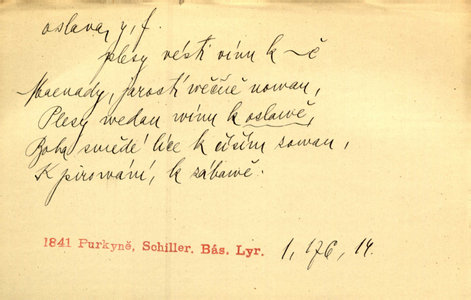 oslava, y, f.
plesy vésti vínu k ~ě
Maenady, jarostí wěčně nowau,
Plesy wedau wínu k oslawě,
Boha smědé líce k číším zowau,
K pirowání, k zábawě.
1841 Purkyně, Schiller. Bás. Lyr. 1, 176, 14.